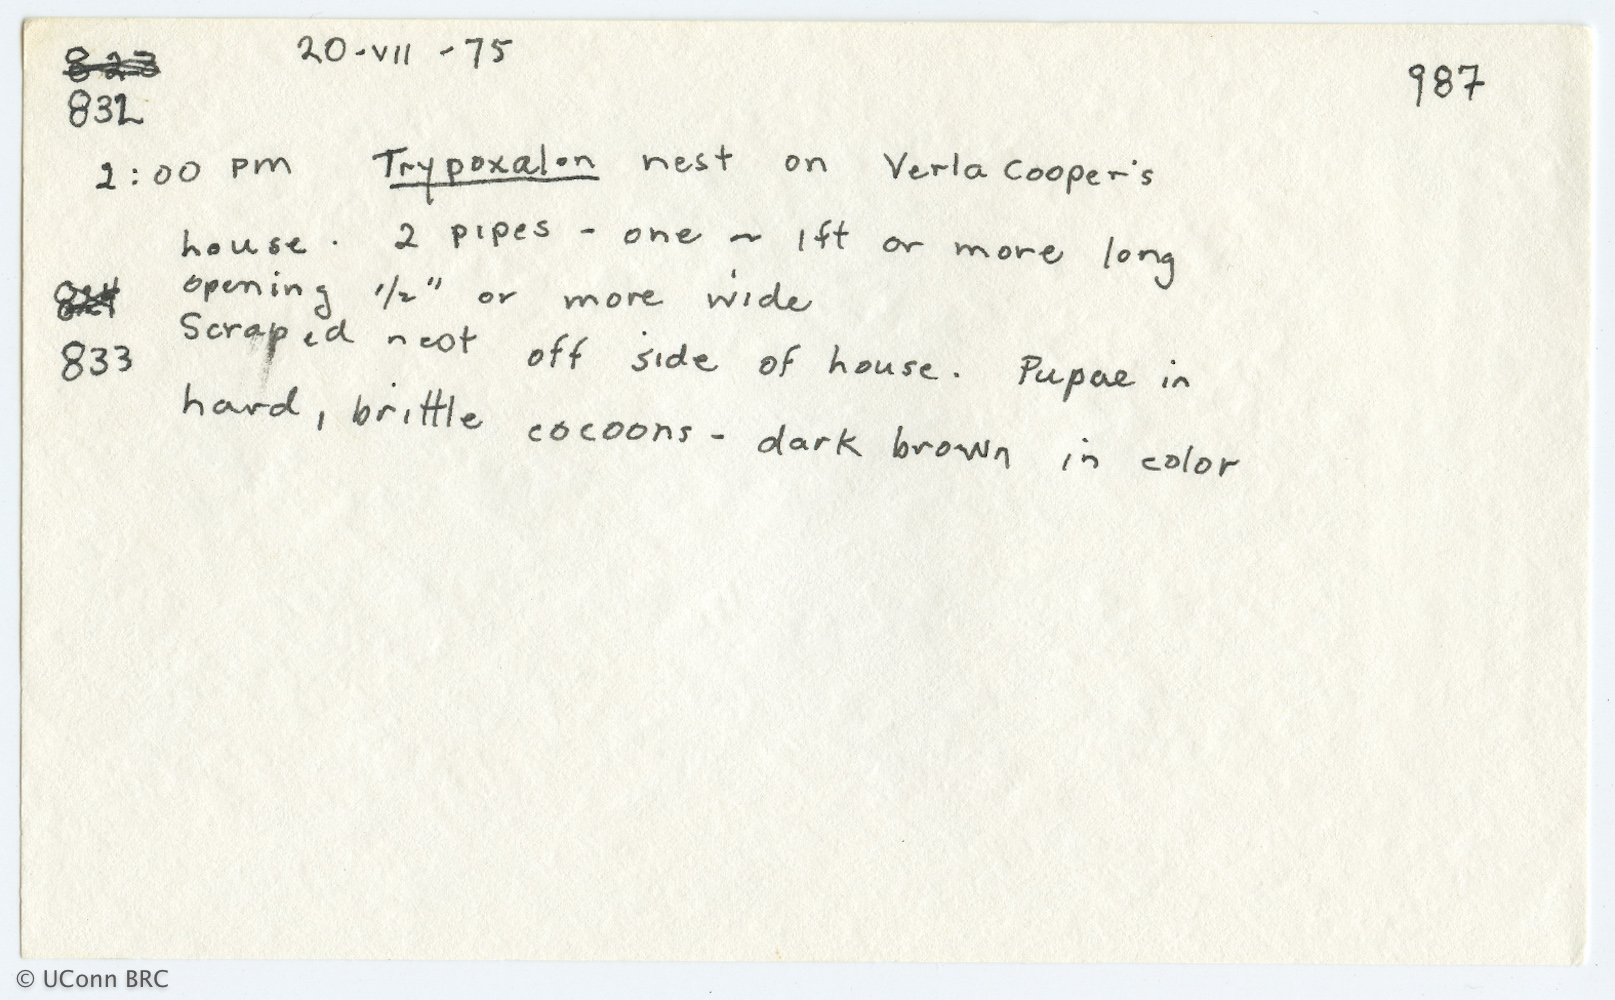 823 20-VII-75 987
832
2:00 pm Trypoxalon nest on Verla Cooper's
house. 2 pipes - one ~ 1ft or more long
824 opening 1/2" or more wide
833 Scraped nest off side of house. Pupae in
hard, brittle cocoons - dark brown in color
© UConn BRC